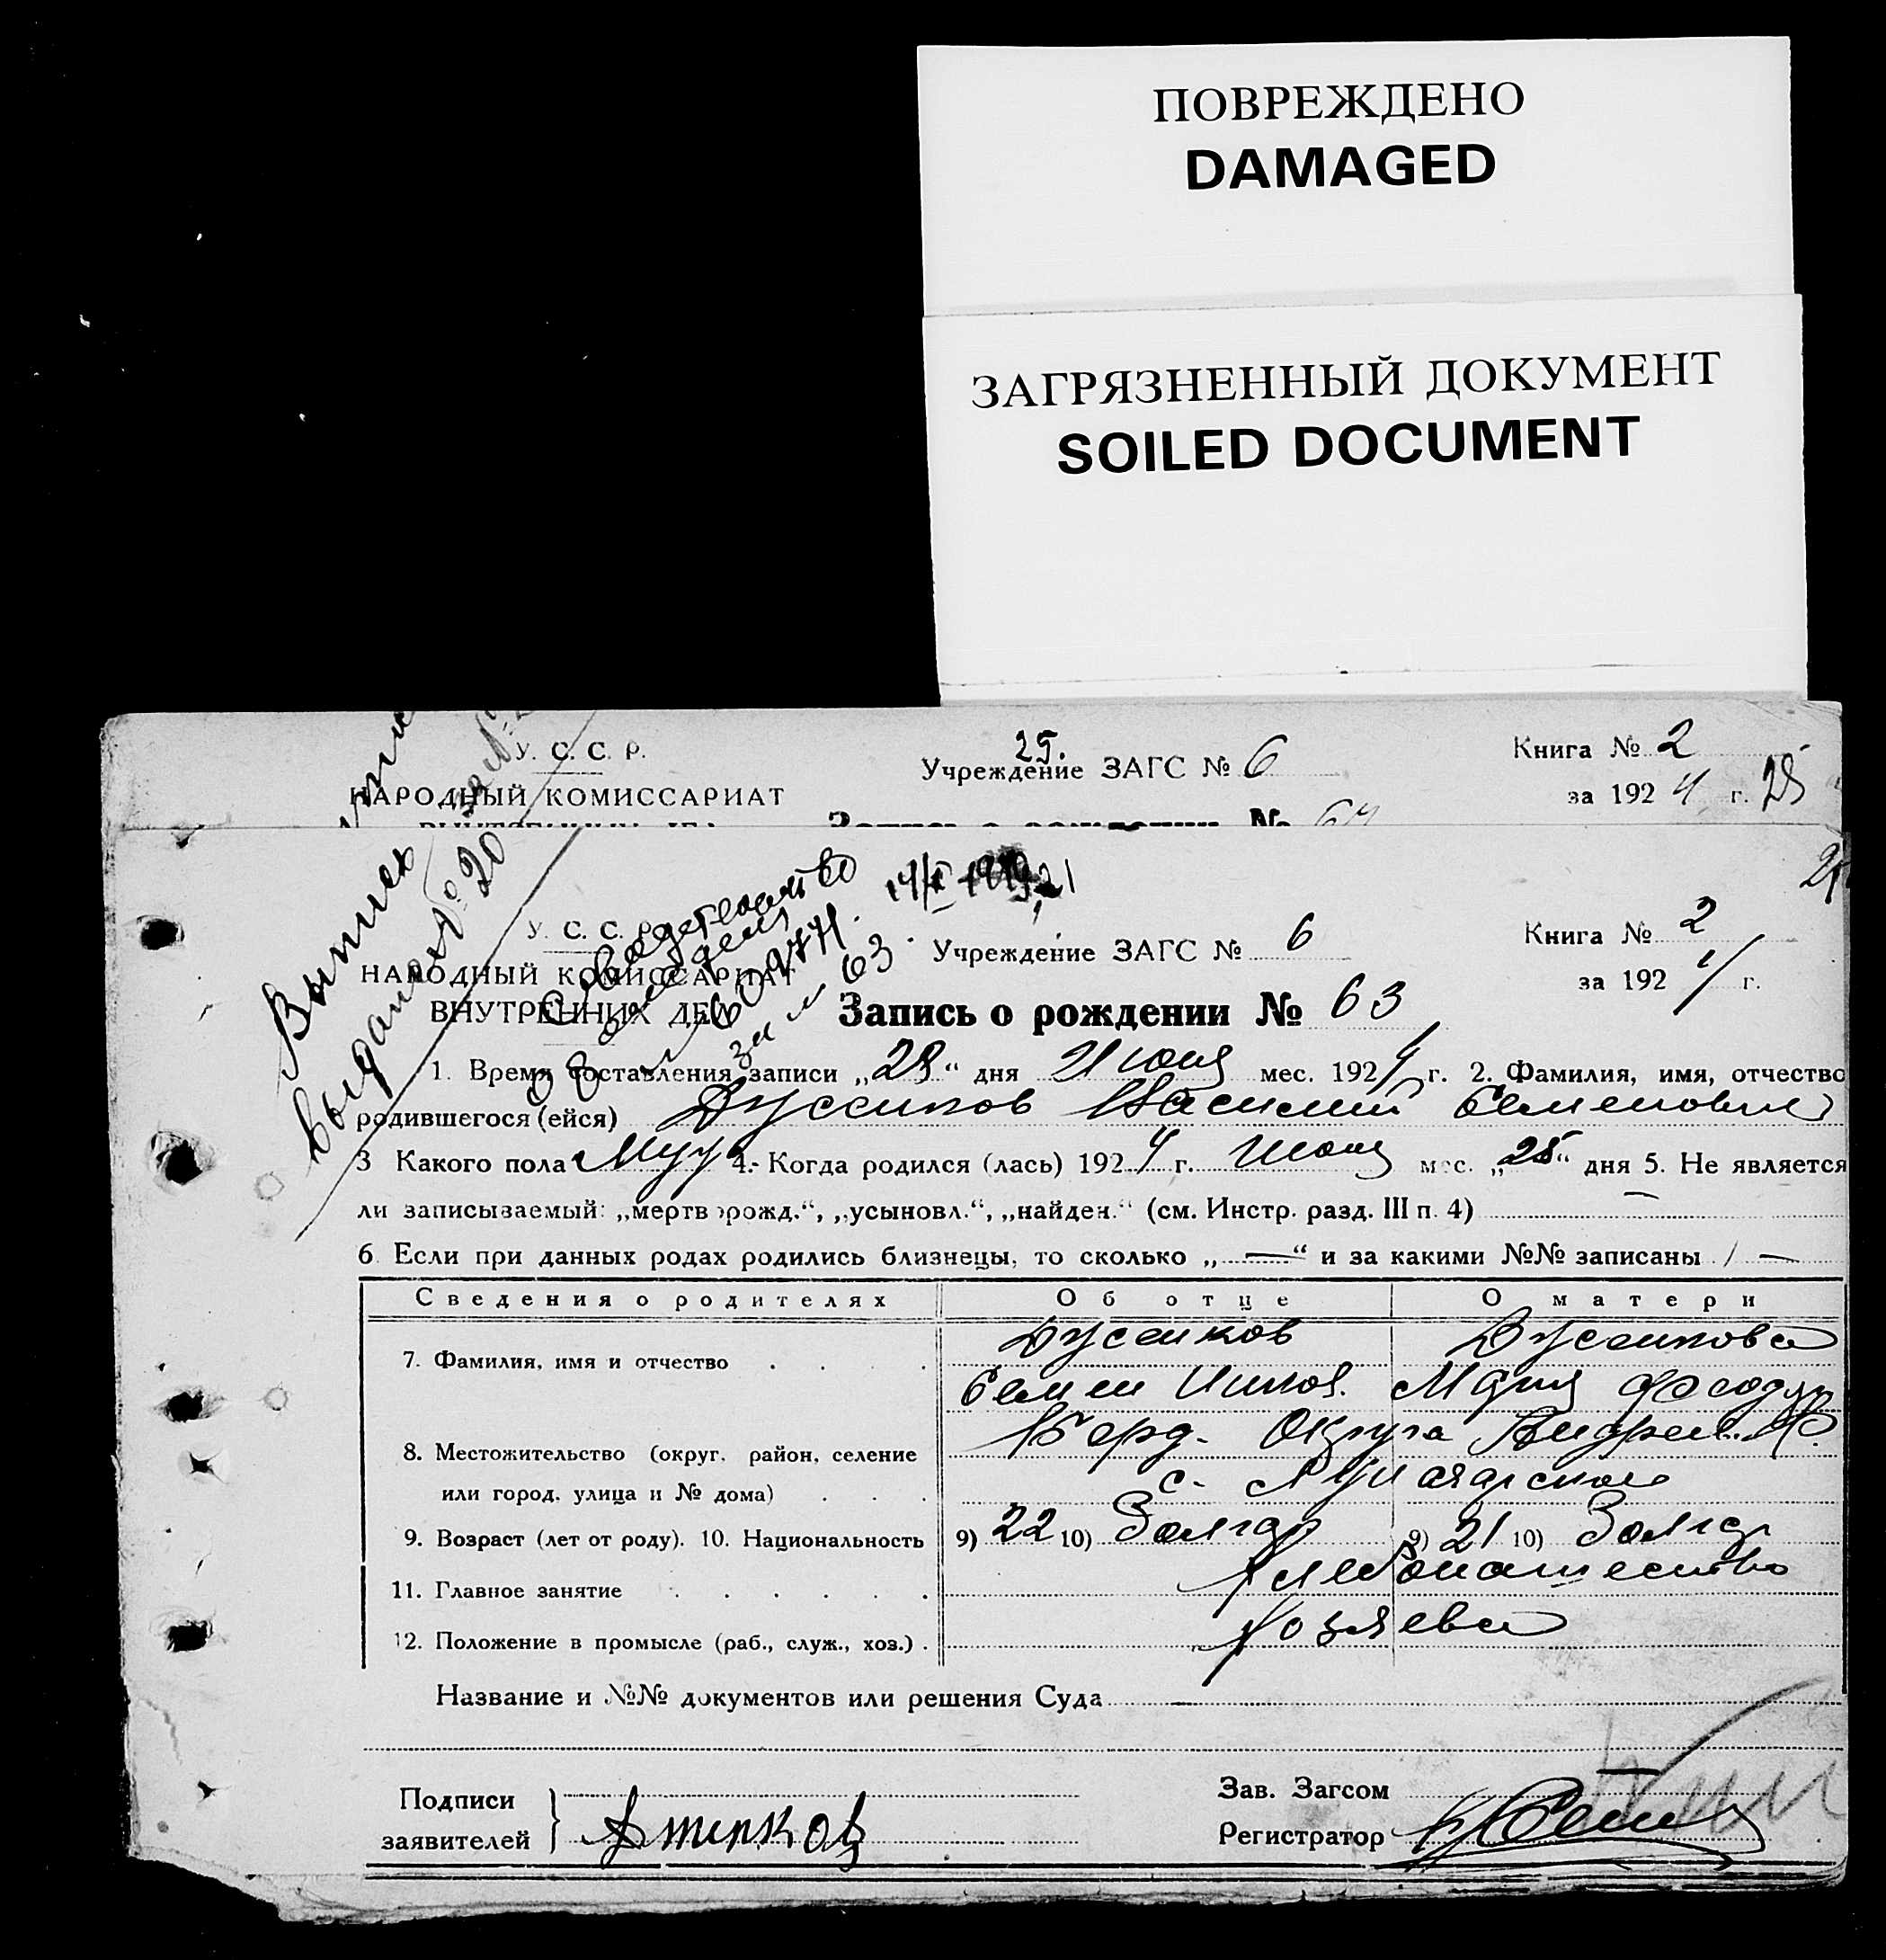 ПОВРЕЖДЕНО
DAMAGED
ЗАГРЯЗНЕННЫЙ ДОКУМЕНТ
SOILED DOCUMENT
У. С. С. Р.
НАРОДНЫЙ КОМИССАРИАТ
25.
Учреждение ЗАГС № 6
Книга № 2
за 192 4 г. 25
Запись о рождении № 64
Выпись
выдана № 20
Свидетельство
за № 63.
У. С. С. Р.
НАРОДНЫЙ КОМИССАРИАТ
ВНУТРЕННИХ ДЕЛ
Учреждение ЗАГС № 6
Книга № 2
за 192 4 г.
Запись о рождении № 63
1. Время составления записи „28“ дня Июня мес. 192 4 г. 2. Фамилия, имя, отчество
родившегося (ейся) Дусенков Василий Семенович
3 Какого пола Муж 4. Когда родился (лась) 192 4 г. Июня мес. „25“ дня 5. Не является
ли записываемый: „мертворожд.“, „усыновл.“, „найден.“ (см. Инстр. разд. III п. 4) —
6. Если при данных родах родились близнецы, то сколько „—“ и за какими №№ записаны / —
Сведения о родителях Об отце О матери
7. Фамилия, имя и отчество Дусенков Дусенкова
Семен Мария
8. Местожительство (округ, район, селение Берд. Округа Андреев. Р
или город, улица и № дома) с.
9. Возраст (лет от роду). 10. Национальность 9) 22 10) Болгар 9) 21 10) Болгар
11. Главное занятие Хлебопашество
12. Положение в промысле (раб., служ., хоз.) Хозяева
Название и №№ документов или решения Суда —
Подписи
заявителей
Зав. Загсом
Регистратор